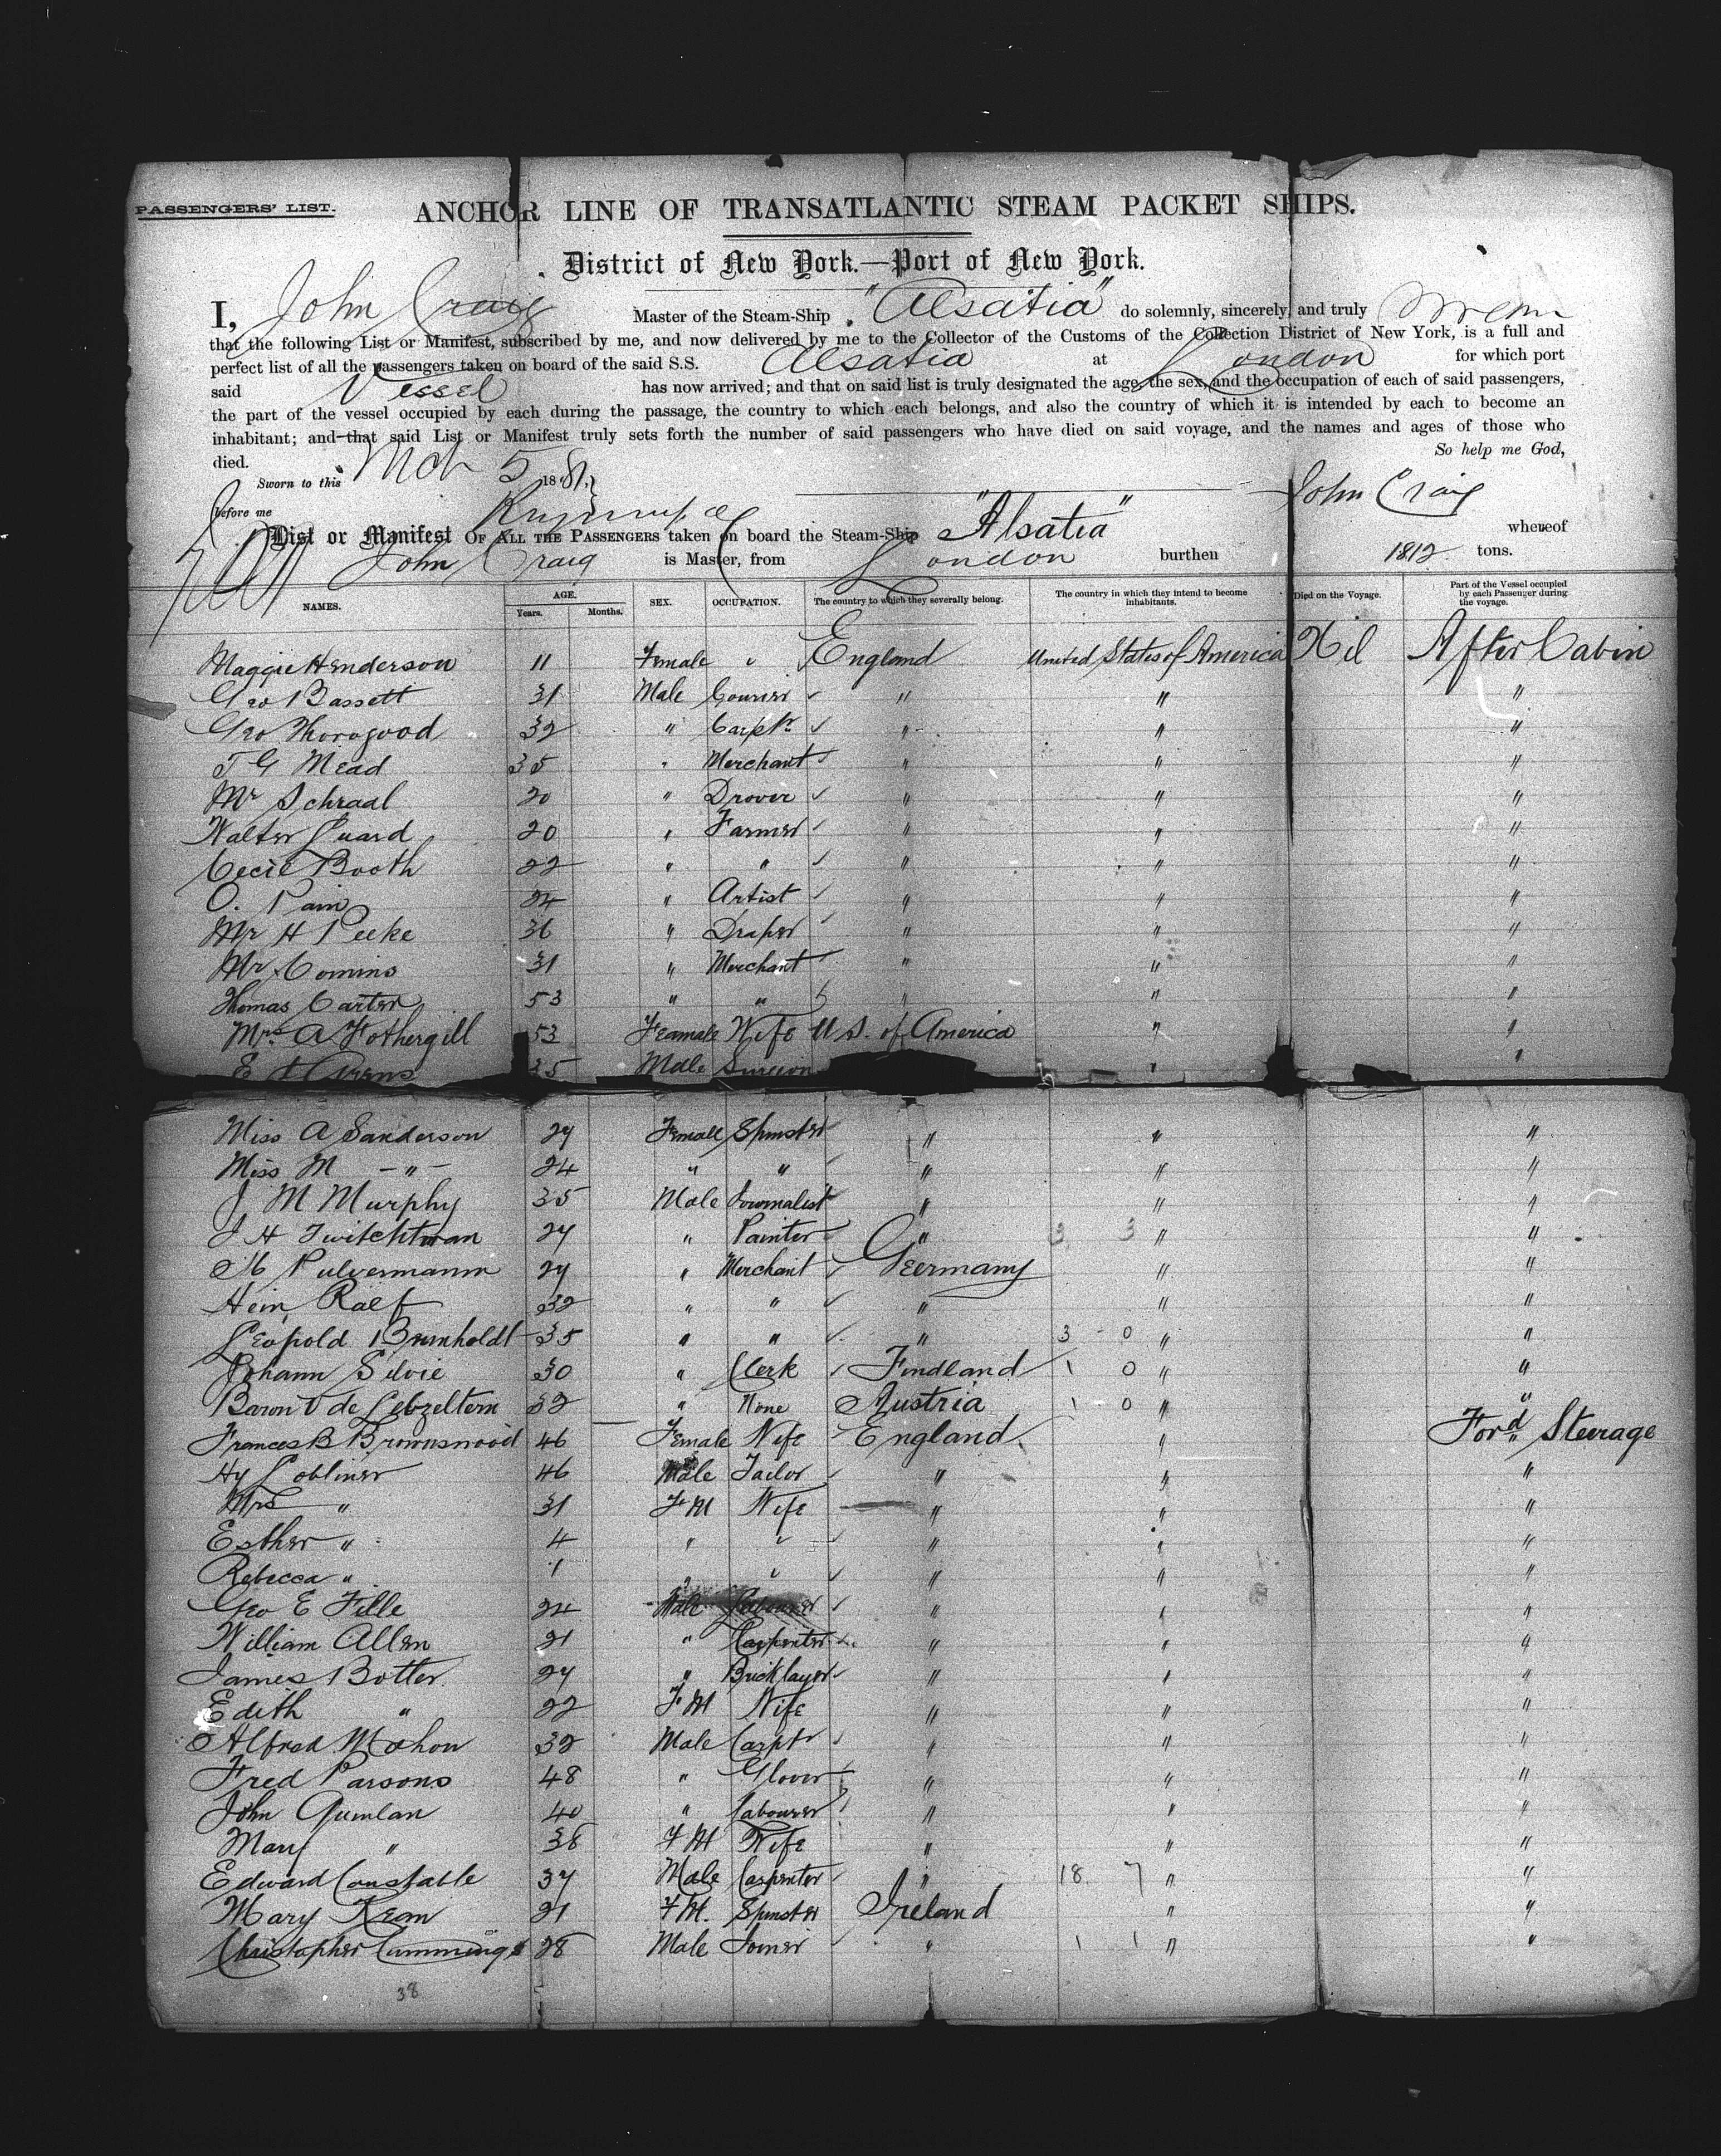 PASSENGERS' LIST.
ANCHOR LINE OF TRANSATLANTIC STEAM PACKET SHIPS.
District of New York.—Port of New York.
I, John Craig Master of the Steam-Ship "Alsatia" do solemnly, sincerely, and truly swear
that the following List or Manifest, subscribed by me, and now delivered by me to the Collector of the Customs of the Collection District of New York, is a full and
perfect list of all the passengers taken on board of the said S.S. Alsatia at London for which port
said Vessel has now arrived; and that on said list is truly designated the age, the sex, and the occupation of each of said passengers,
the part of the vessel occupied by each during the passage, the country to which each belongs, and also the country of which it is intended by each to become an
inhabitant; and that said List or Manifest truly sets forth the number of said passengers who have died on said voyage, and the names and ages of those who
died. So help me God,
Sworn to this Mch 5 1881, John Craig
before me
List or Manifest OF ALL THE PASSENGERS taken on board the Steam-Ship "Alsatia" whereof
John Craig is Master, from London burthen 1812 tons.
NAMES. AGE. Years. Months. SEX. OCCUPATION. The country to which they severally belong. The country in which they intend to become inhabitants. Died on the Voyage. Part of the Vessel occupied by each Passenger during the voyage.
Maggie Henderson 11 Female " England United States of America Nil After Cabin
Geo Bassett 31 Male Courier " " "
Geo Thorogood 32 " Carptr " " "
T G Mead 35 " Merchant " " "
Mr Schraal 20 " Drover " " "
Walter Luard 20 " Farmer " " "
Cecil Booth 22 " " " " "
O. Pain 24 " Artist " " "
Mr H Peeke 36 " Draper " " "
Mr Comins 31 " Merchant " " "
Thomas Carter 53 " " " " "
Mrs A Fothergill 53 Feamale Wife U S. of America " "
E 35 Male Surgeon " "
Miss A Sanderson 27 Female Spinster " " "
Miss M - " - 24 " " " " "
J M Murphy 35 Male Journalist " " "
J H Twitchtman 27 " Painter " 3 3 " "
M Pulvermann 27 " Merchant Geermany " "
Hein Ralf 32 " " " " "
Leopold Brumholdt 35 " " " 3 - 0 " "
Johann Silvie 30 " Clerk Findland 1 0 " "
Baron V de Lebzeltern 32 " None Austria 1 - 0 " "
Frances B Brownswood 46 Female Wife England " Ford Steerage
Hy Lobliner 46 Male Tailor " " "
Mrs " 31 F M Wife " " "
Esther " 4 " " " " "
Rebecca " 1 " " " " "
Geo E Fille 24 Male Labourer " " "
William Allen 21 " Carpenter " " "
James Botter 27 " Bricklayer " " "
Edith " 22 F M Wife " " "
Alfred Mahon 32 Male Carptr " " "
Fred Parsons 48 " Glover " " "
John Quinlan 40 " Labourer " " "
Mary " 38 F M Wife " " "
Edward Constable 37 Male Carpenter " 18 7 " "
Mary Kean 21 F M. Spinster Ireland " "
Christopher Cummings 28 Male Joiner " 1 1 " "
38